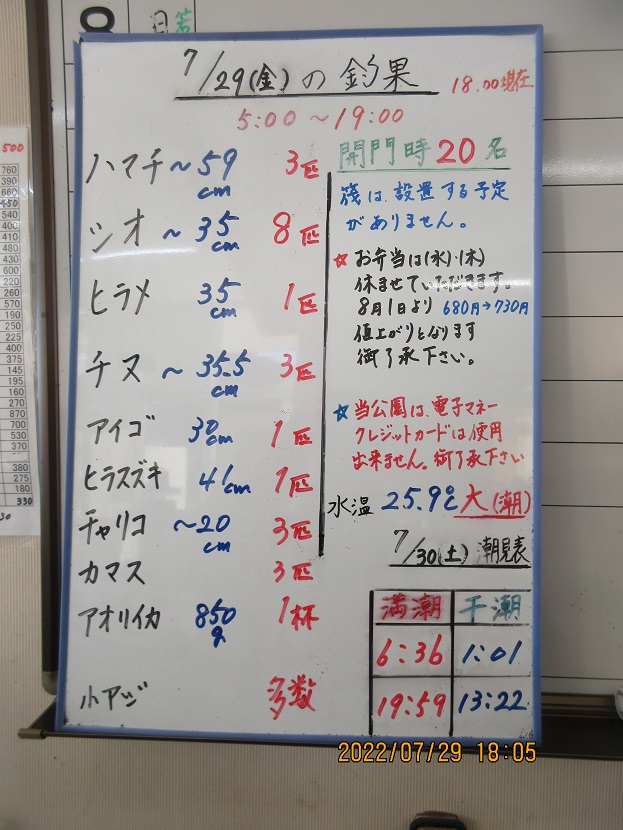 7/29(金)の釣果
18.00現在
5:00～19:00
ハマチ～59cm 3匹
シオ～35cm 8匹
ヒラメ 35cm 1匹
チヌ～35.5cm 3匹
アイゴ 30cm 1匹
ヒラスズキ 41cm 1匹
チャリコ～20cm 3匹
カマス 3匹
アオリイカ 850g 1杯
小アジ 多数
開門時20名
筏は、設置する予定
がありません。
☆お弁当は(水)・(木)
休ませていただきます。
8月1日より 680円→730円
値上がりとなります
御了承下さい。
☆当公園は、電子マネー
クレジットカードは使用
出来ません。御了承下さい
水温 25.9℃ 大(潮)
7/30(土)潮見表
満潮 干潮
6:36 1:01
19:59 13:22
2022/07/29 18:05
500
760
390
660
450
540
400
480
430
600
220
260
570
190
375
145
195
160
270
870
700
530
370
380
275
180
330